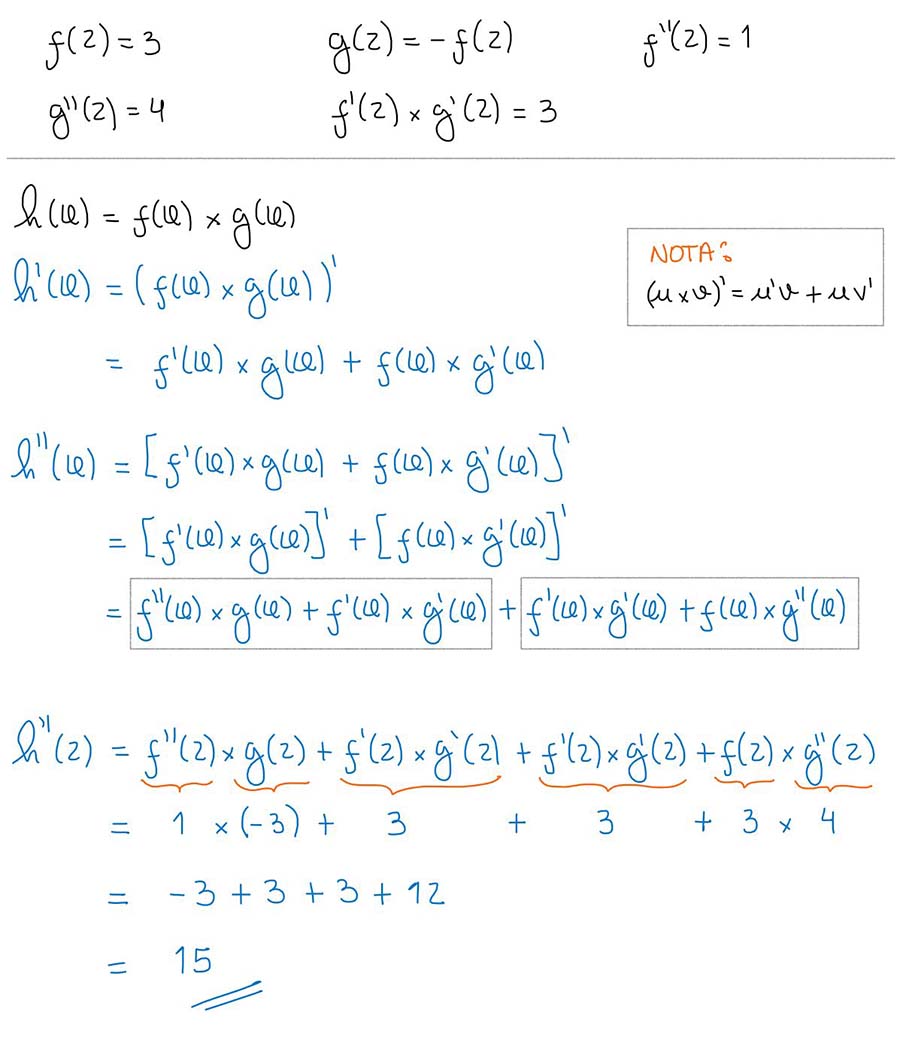 f(2) = 3 g(2) = -f(2) f''(2) = 1
g''(2) = 4 f'(2) × g'(2) = 3
h(x) = f(x) × g(x)
h'(x) = (f(x) × g(x))'
NOTA:
(u×v)' = u'v + uv'
= f'(x) × g(x) + f(x) × g'(x)
h''(x) = [f'(x) × g(x) + f(x) × g'(x)]'
= [f'(x) × g(x)]' + [f(x) × g'(x)]'
= f''(x) × g(x) + f'(x) × g'(x) + f'(x) × g'(x) + f(x) × g''(x)
h''(2) = f''(2) × g(2) + f'(2) × g'(2) + f'(2) × g'(2) + f(2) × g''(2)
= 1 × (-3) + 3 + 3 + 3 × 4
= -3 + 3 + 3 + 12
= 15